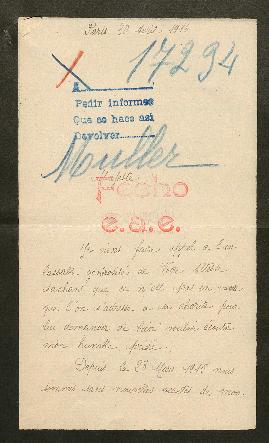 Paris, 20 Août 1916
17294
A
Pedir informes
Que se hace así
Devolver
Muller
Majesté
Fecho
e.a.e.
Je viens faire appel à l'in-
de Votre Altesse
sachant que ce n'est pas en vain
que l'on s'adresse à sa charité pour
lui demander de bien vouloir écouter
mon humble prière.
Depuis le 28 Mars 1916 nous
sommes sans nouvelles exactes de mon